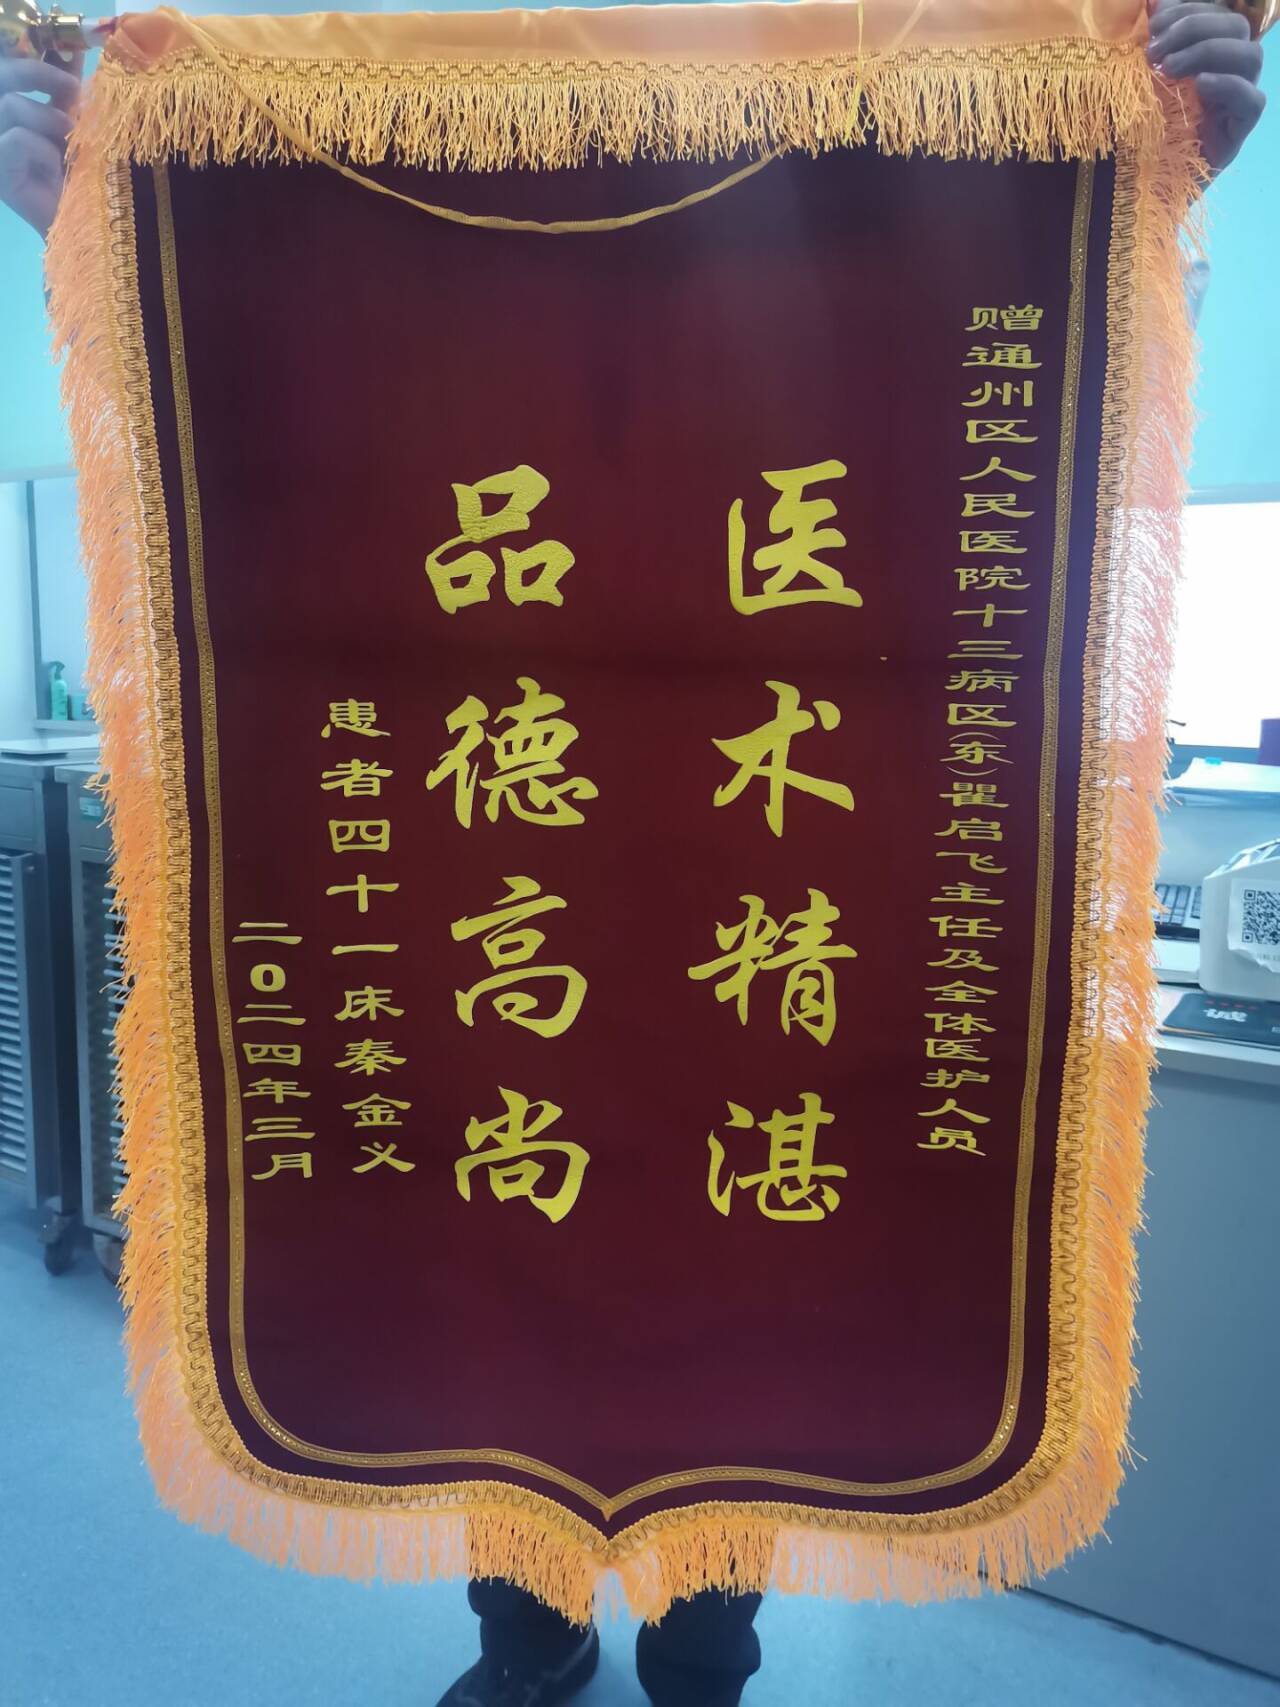 赠通州区人民医院十三病区(东)瞿启飞主任及全体医护人员
医术精湛
品德高尚
患者四十一床秦金义
二0二四年三月
诚